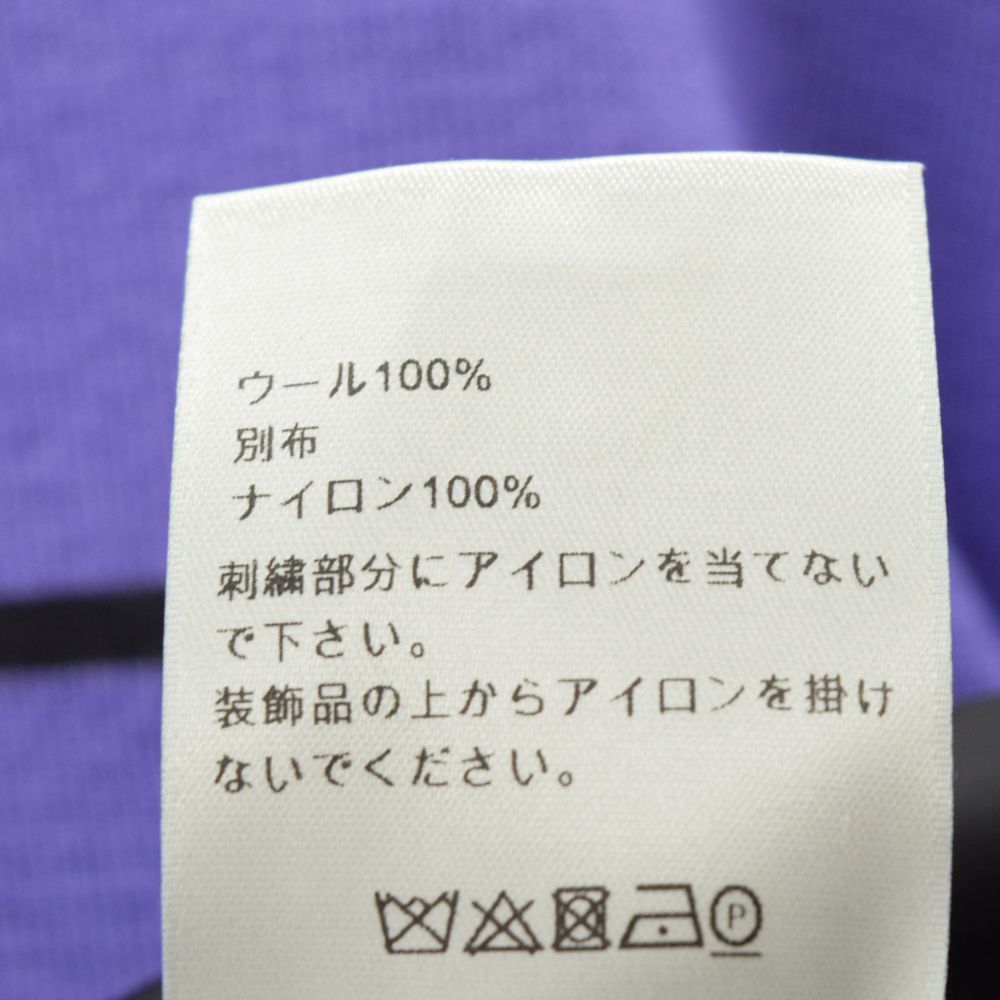 ウール100%
別布
ナイロン100%
刺繍部分にアイロンを当てない
で下さい。
装飾品の上からアイロンを掛け
ないでください。
P